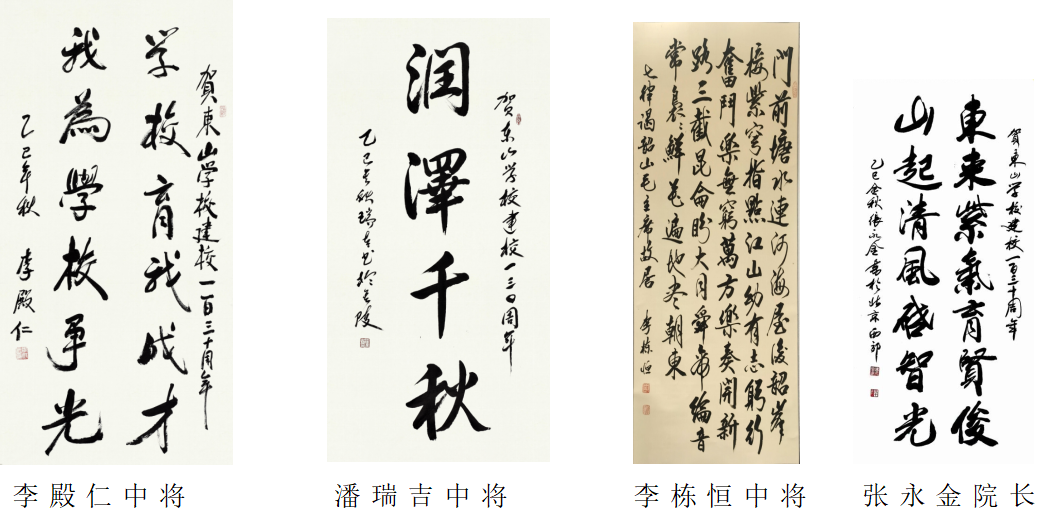 賀東山学校建校一百三十周年
学校育我成才
我為學校争光
乙巳年秋 李殿仁
贺东山学校建校一三〇周年
润澤千秋
乙巳金秋瑞吉书於金陵
門前塘水連河海屋後韶峯
接紫穹指點江山幼有志躬行
奮鬥樂無窮萬方樂奏開新
路三截昆侖盼大同舜帝綸音
常裊〻鮮花遍地尽朝東
七律谒韶山毛主席故居 李栋恒
賀東山学校建校一百三十周年
東来紫氣育賢俊
山起清風啓智光
乙巳金秋张永金書於北京西郊
李殿仁中将
潘瑞吉中将
李栋恒中将
张永金院长